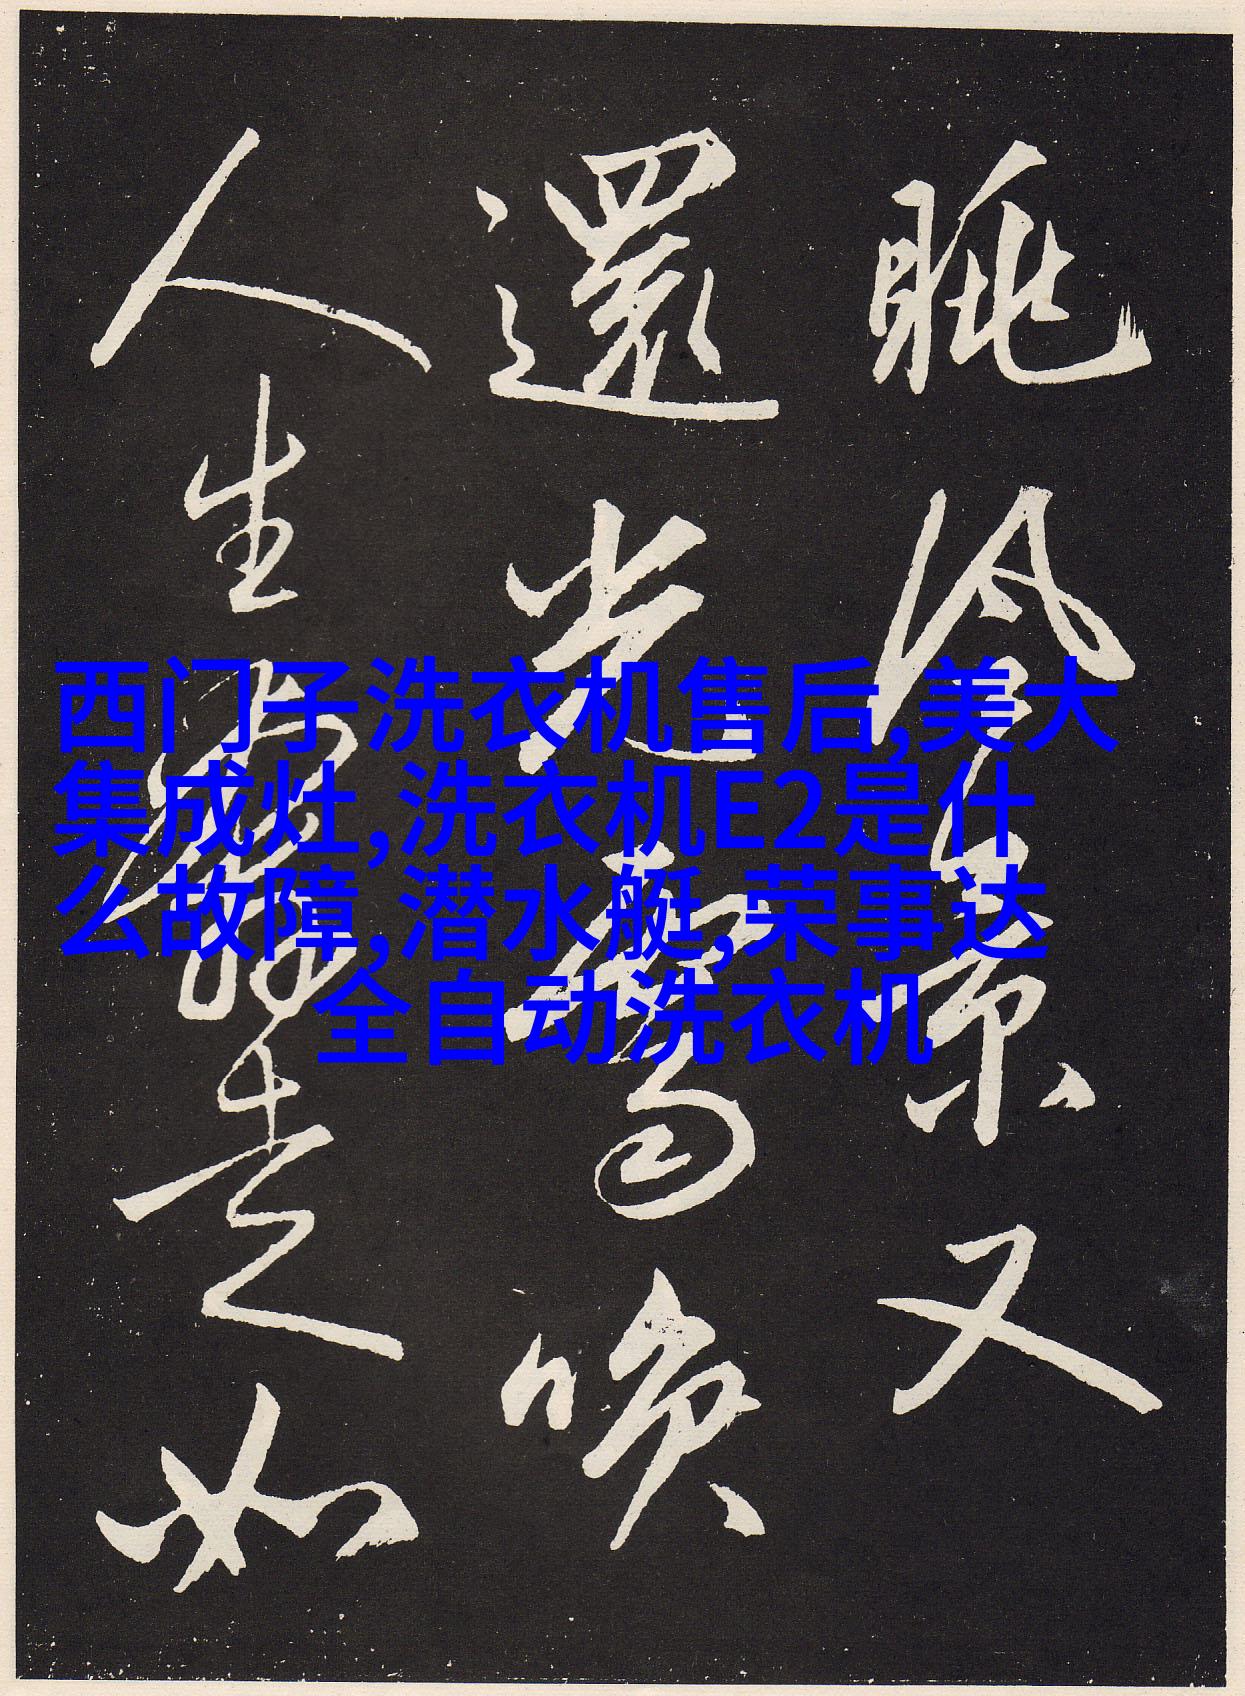 西门子洗衣机售后,美大
集成灶,洗衣机E2是什
么故障,潜水艇,荣事达
全自动洗衣机
眺又
還
人生如